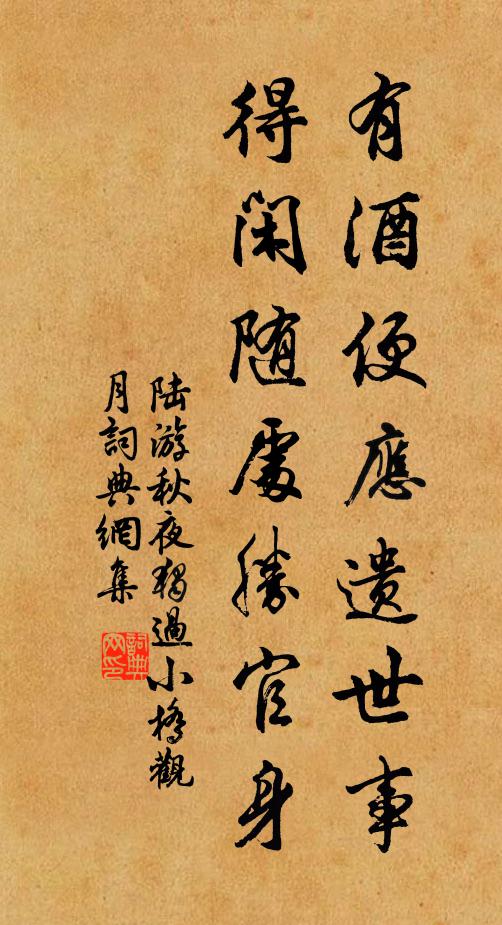 有酒便應遺世事
得閑随處勝官身
陆游秋夜獨過小橋觀
月詞典網集
詞典
網印